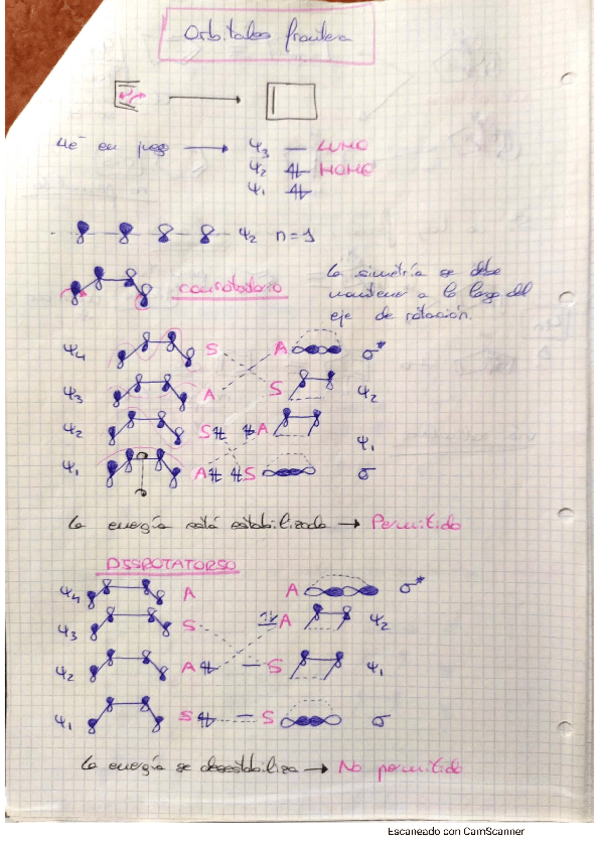 Orbitales frontera
4e⁻ en juego → Ψ3 — LUMO
Ψ2 HOMO
Ψ1
Ψ2 n=1
conrotatorio
La simetría se debe
mantener a lo largo del
eje de rotación.
Ψ4 S A σ*
Ψ3 A S Ψ2
Ψ2 S A Ψ1
Ψ1 A S σ
La energía está estabilizada → Permitido
DISROTATORIO
Ψ4 A A σ*
Ψ3 S A Ψ2
Ψ2 A S Ψ1
Ψ1 S S σ
La energía se desestabiliza → No permitido
Escaneado con CamScanner